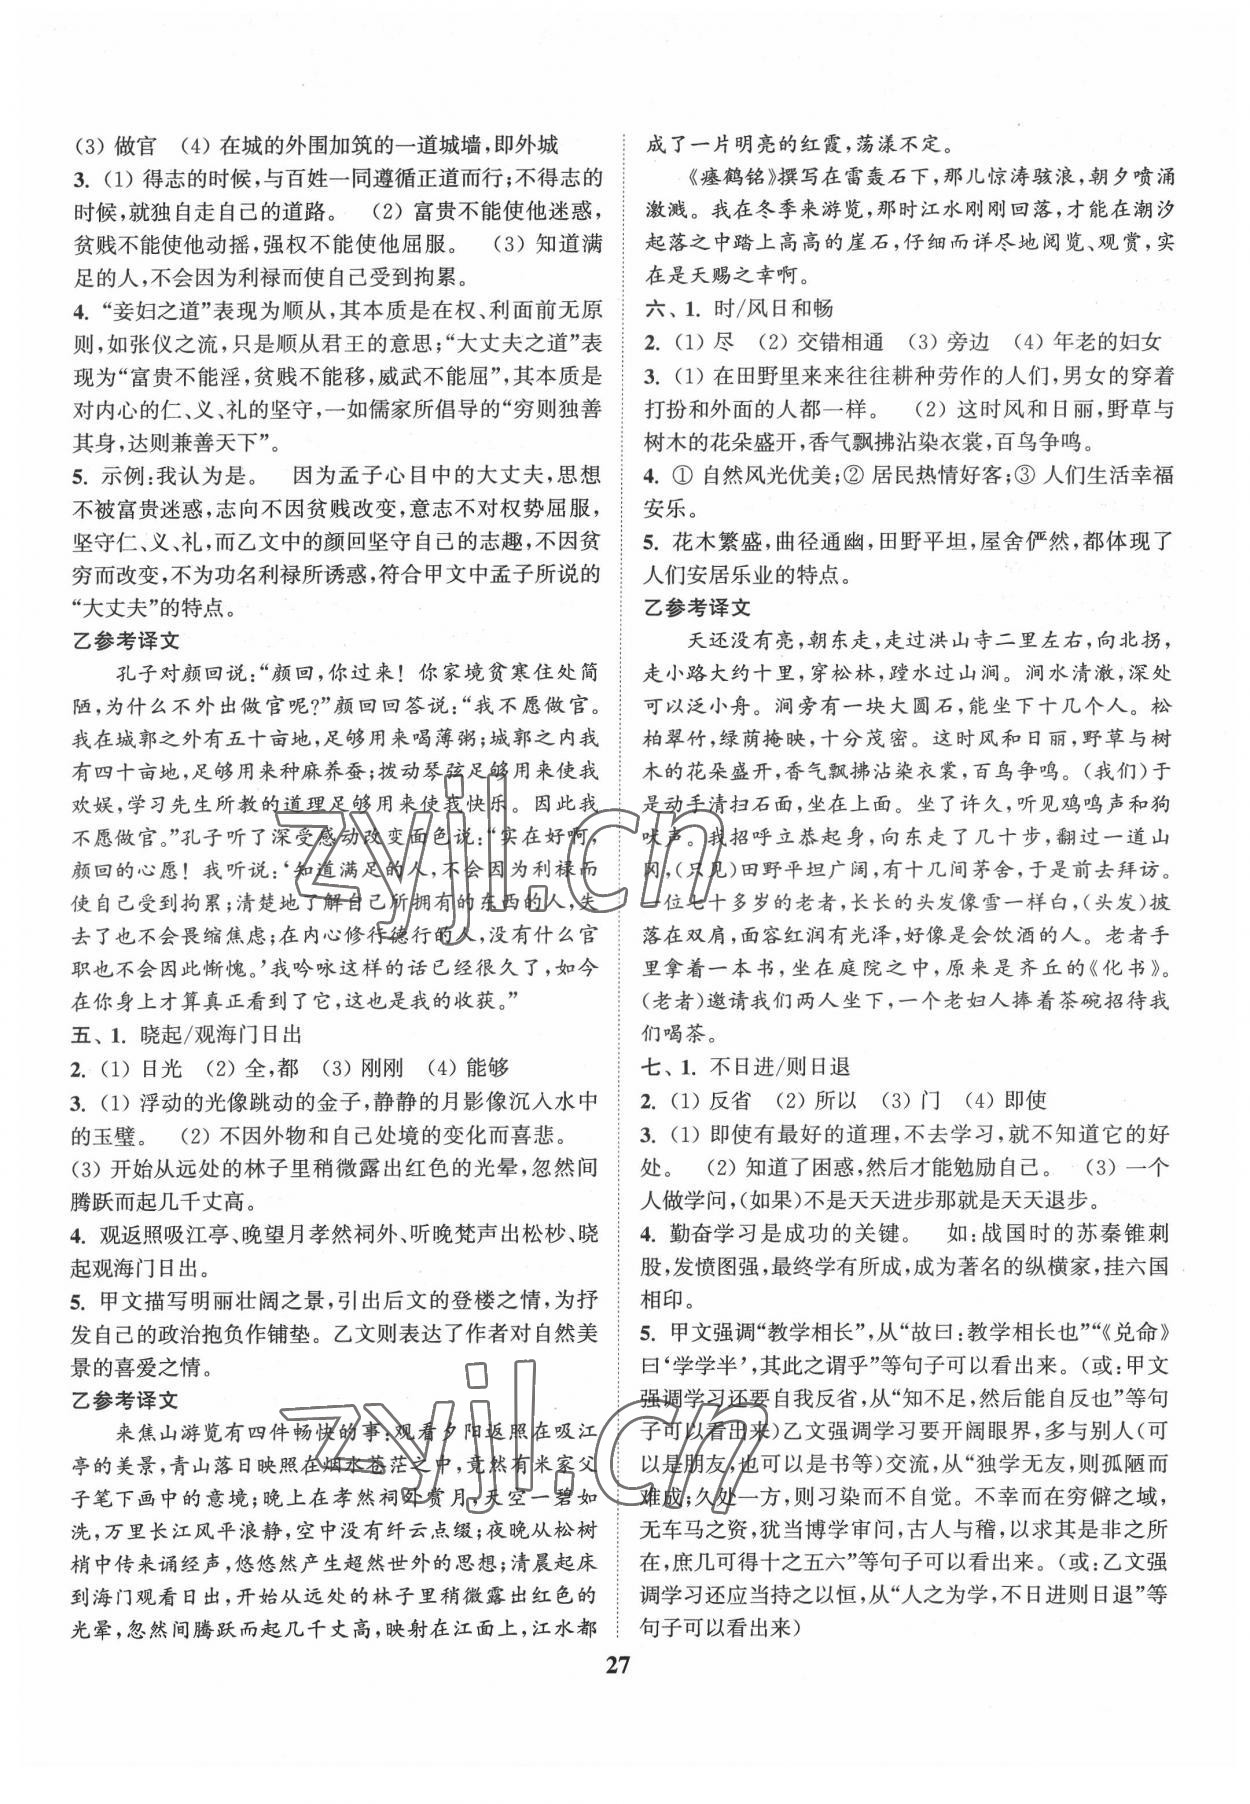 (3) 做官　(4) 在城的外围加筑的一道城墙,即外城
3. (1) 得志的时候,与百姓一同遵循正道而行;不得志的
时候,就独自走自己的道路。　(2) 富贵不能使他迷惑,
贫贱不能使他动摇,强权不能使他屈服。　(3) 知道满
足的人,不会因为利禄而使自己受到拘累。
4. “妾妇之道”表现为顺从,其本质是在权、利面前无原
则,如张仪之流,只是顺从君王的意思;“大丈夫之道”表
现为“富贵不能淫,贫贱不能移,威武不能屈”,其本质是
对内心的仁、义、礼的坚守,一如儒家所倡导的“穷则独善
其身,达则兼善天下”。
5. 示例:我认为是。　因为孟子心目中的大丈夫,思想
不被富贵迷惑,志向不因贫贱改变,意志不对权势屈服,
坚守仁、义、礼,而乙文中的颜回坚守自己的志趣,不因贫
穷而改变,不为功名利禄所诱惑,符合甲文中孟子所说的
“大丈夫”的特点。
乙参考译文
孔子对颜回说:“颜回,你过来！你家境贫寒住处简
陋,为什么不外出做官呢?”颜回回答说:“我不愿做官。
我在城郭之外有五十亩地,足够用来喝薄粥;城郭之内我
有四十亩地,足够用来种麻养蚕;拨动琴弦足够用来使我
欢娱,学习先生所教的道理足够用来使我快乐。因此我
不愿做官。”孔子听了深受感动改变面色说:“实在好啊,
颜回的心愿！我听说:‘知道满足的人,不会因为利禄而
使自己受到拘累;清楚地了解自己所拥有的东西的人,失
去了也不会畏缩焦虑;在内心修行德行的人,没有什么官
职也不会因此惭愧。’我吟咏这样的话已经很久了,如今
在你身上才算真正看到了它,这也是我的收获。”
五、1. 晓起/观海门日出
2. (1) 日光　(2) 全,都　(3) 刚刚　(4) 能够
3. (1) 浮动的光像跳动的金子,静静的月影像沉入水中
的玉璧。　(2) 不因外物和自己处境的变化而喜悲。
(3) 开始从远处的林子里稍微露出红色的光晕,忽然间
腾跃而起几千丈高。
4. 观返照吸江亭、晚望月孝然祠外、听晚梵声出松杪、晓
起观海门日出。
5. 甲文描写明丽壮阔之景,引出后文的登楼之情,为抒
发自己的政治抱负作铺垫。乙文则表达了作者对自然美
景的喜爱之情。
乙参考译文
来焦山游览有四件畅快的事:观看夕阳返照在吸江
亭的美景,青山落日映照在烟水苍茫之中,竟然有米家父
子笔下画中的意境;晚上在孝然祠外赏月,天空一碧如
洗,万里长江风平浪静,空中没有纤云点缀;夜晚从松树
梢中传来诵经声,悠悠然产生超然世外的思想;清晨起床
到海门观看日出,开始从远处的林子里稍微露出红色的
光晕,忽然间腾跃而起几千丈高,映射在江面上,江水都
成了一片明亮的红霞,荡漾不定。
《瘗鹤铭》撰写在雷轰石下,那儿惊涛骇浪,朝夕喷涌
激溅。我在冬季来游览,那时江水刚刚回落,才能在潮汐
起落之中踏上高高的崖石,仔细而详尽地阅览、观赏,实
在是天赐之幸啊。
六、1. 时/风日和畅
2. (1) 尽　(2) 交错相通　(3) 旁边　(4) 年老的妇女
3. (1) 在田野里来来往往耕种劳作的人们,男女的穿着
打扮和外面的人都一样。　(2) 这时风和日丽,野草与
树木的花朵盛开,香气飘拂沾染衣裳,百鸟争鸣。
4. ① 自然风光优美;② 居民热情好客;③ 人们生活幸福
安乐。
5. 花木繁盛,曲径通幽,田野平坦,屋舍俨然,都体现了
人们安居乐业的特点。
乙参考译文
天还没有亮,朝东走,走过洪山寺二里左右,向北拐,
走小路大约十里,穿松林,蹚水过山涧。涧水清澈,深处
可以泛小舟。涧旁有一块大圆石,能坐下十几个人。松
柏翠竹,绿荫掩映,十分茂密。这时风和日丽,野草与树
木的花朵盛开,香气飘拂沾染衣裳,百鸟争鸣。(我们)于
是动手清扫石面,坐在上面。坐了许久,听见鸡鸣声和狗
吠声。我招呼立恭起身,向东走了几十步,翻过一道山
冈,(只见)田野平坦广阔,有十几间茅舍,于是前去拜访。
一位七十多岁的老者,长长的头发像雪一样白,(头发)披
落在双肩,面容红润有光泽,好像是会饮酒的人。老者手
里拿着一本书,坐在庭院之中,原来是齐丘的《化书》。
(老者)邀请我们两人坐下,一个老妇人捧着茶碗招待我
们喝茶。
七、1. 不日进/则日退
2. (1) 反省　(2) 所以　(3) 门　(4) 即使
3. (1) 即使有最好的道理,不去学习,就不知道它的好
处。　(2) 知道了困惑,然后才能勉励自己。　(3) 一个
人做学问,(如果)不是天天进步那就是天天退步。
4. 勤奋学习是成功的关键。　如:战国时的苏秦锥刺
股,发愤图强,最终学有所成,成为著名的纵横家,挂六国
相印。
5. 甲文强调“教学相长”,从“故曰:教学相长也”“《兑命》
曰‘学学半’,其此之谓乎”等句子可以看出来。(或:甲文
强调学习还要自我反省,从“知不足,然后能自反也”等句
子可以看出来)乙文强调学习要开阔眼界,多与别人(可
以是朋友,也可以是书等)交流,从“独学无友,则孤陋而
难成;久处一方,则习染而不自觉。不幸而在穷僻之域,
无车马之资,犹当博学审问,古人与稽,以求其是非之所
在,庶几可得十之五六”等句子可以看出来。(或:乙文强
调学习还应当持之以恒,从“人之为学,不日进则日退”等
句子可以看出来)
27
zyjl.cn
zyjl.cn